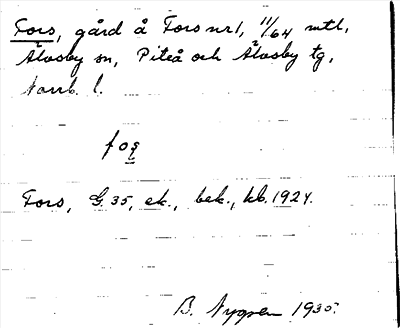 Fors, gård å Fors nr 1, 11/64 mtl,
Älvsby sn, Piteå och Älvsby tg,
Norrb. l.
fǫș
Fors, G. 35, ek., bek., kb. 1924.
B. Nygren 1930.